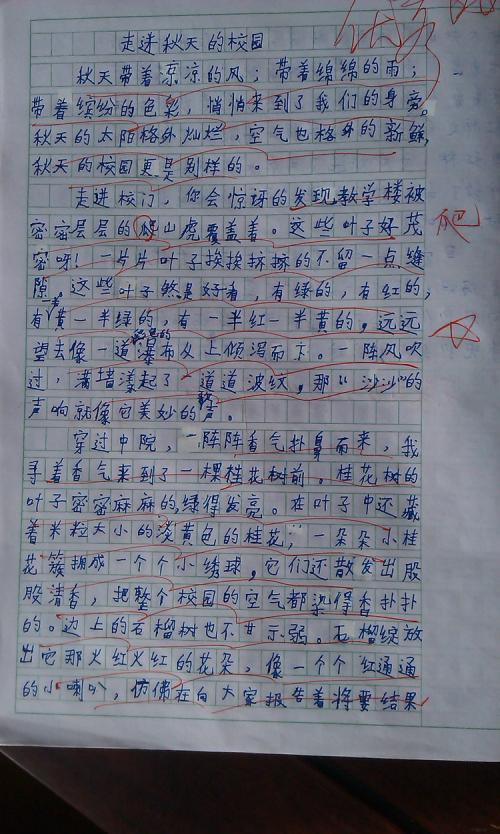 优秀
走进秋天的校园
秋天带着凉凉的风；带着绵绵的雨；
带着缤纷的色彩，悄悄来到了我们的身旁。
秋天的太阳格外灿烂，空气也格外的新鲜，
秋天的校园更是别样的。
走进校门，你会惊讶的发现教学楼被
密密层层的爬山虎覆盖着。这些叶子好茂
爬
密呀！一片片叶子挨挨挤挤的不留一点缝
隙，这些叶子煞是好看，有绿的，有红的，
有一半黄一半绿的，有一半红一半黄的，远远
望去像一道瀑布从上倾泻而下。一阵风吹
过，满墙漾起了一道道波纹，那“沙沙”的
声响就像它美妙的歌声。
穿过中院，一阵阵香气扑身而来，我
寻着香气来到了一棵桂花树前。桂花树的
叶子密密麻麻的，绿得发亮。在叶子中还藏
着米粒大小的淡黄色的桂花；一朵朵小桂
花簇拥成一个个小绣球，它们还散发出股
股清香，把整个校园的空气都染得香扑扑
的。边上的石榴树也不甘示弱。石榴绽放
出它那火红火红的花朵，像一个个红通通
的小喇叭，仿佛在向大家报告着将要结果